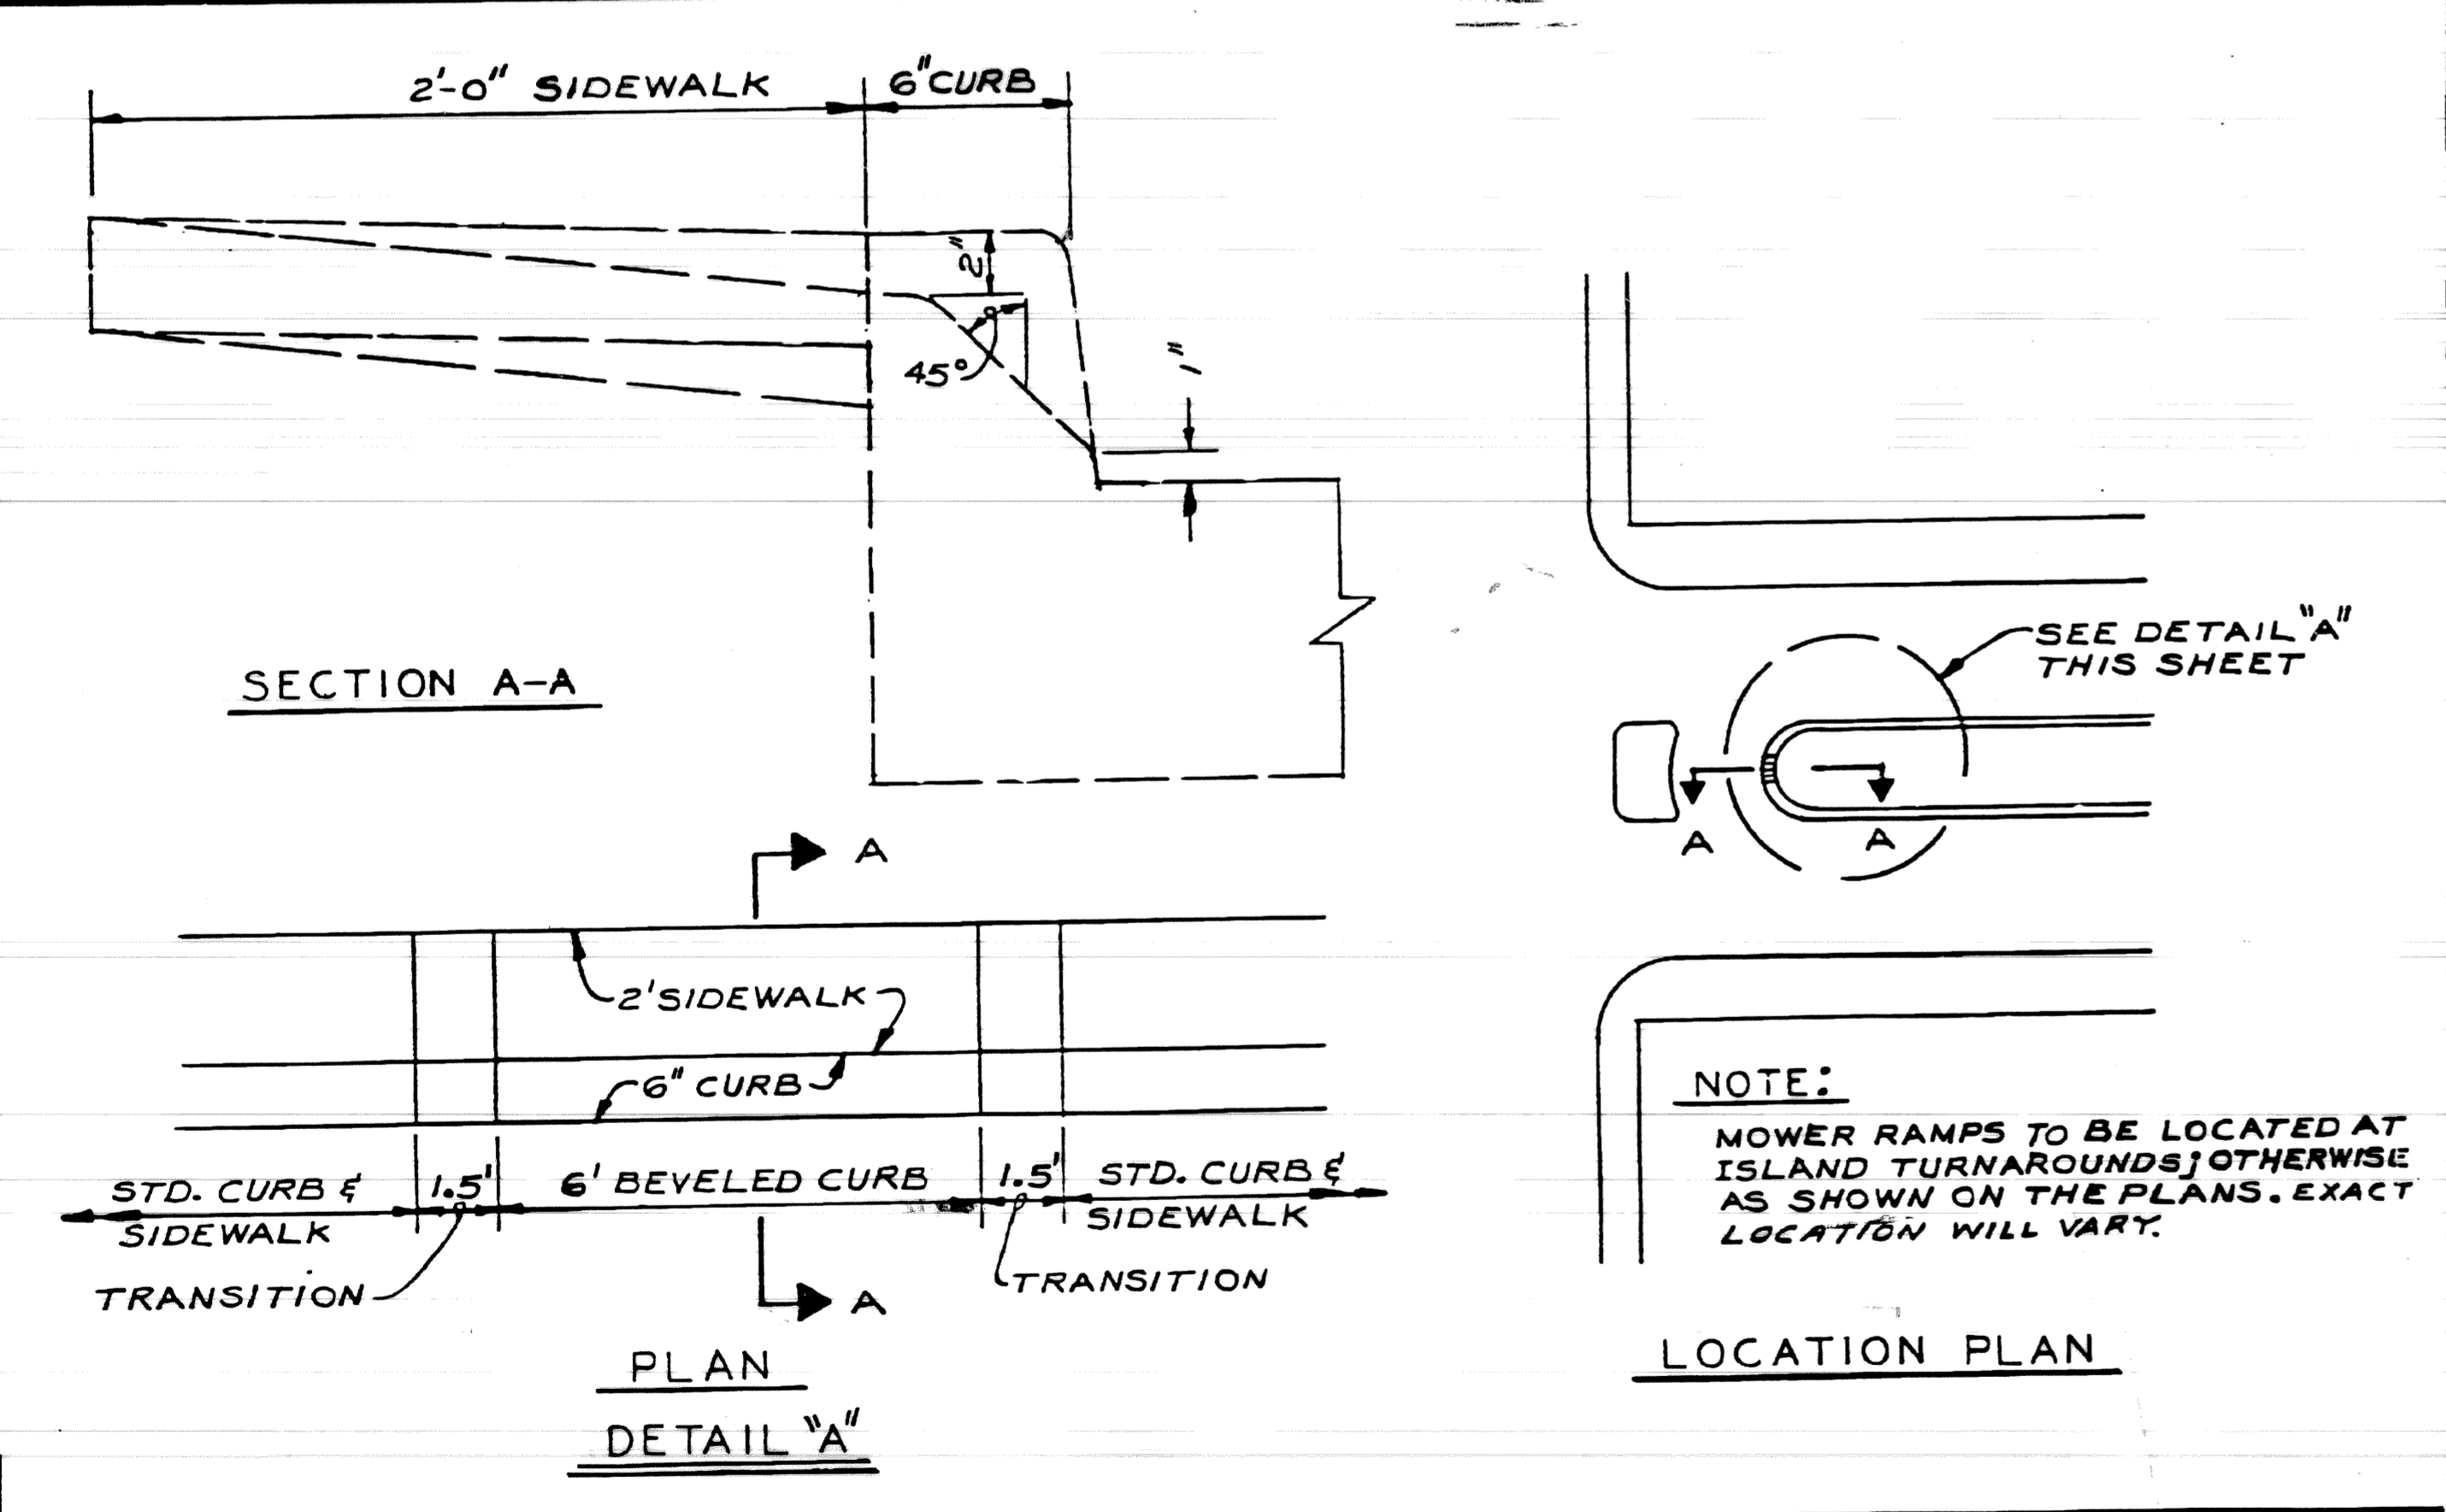 2'-0" SIDEWALK
6" CURB
2"
45°
1"
SECTION A-A
SEE DETAIL "A"
THIS SHEET
A
A
A
2' SIDEWALK
6" CURB
STD. CURB &
SIDEWALK
1.5'
6' BEVELED CURB
1.5'
STD. CURB &
SIDEWALK
TRANSITION
TRANSITION
A
PLAN
DETAIL "A"
NOTE:
MOWER RAMPS TO BE LOCATED AT
ISLAND TURNAROUNDS; OTHERWISE
AS SHOWN ON THE PLANS. EXACT
LOCATION WILL VARY.
LOCATION PLAN